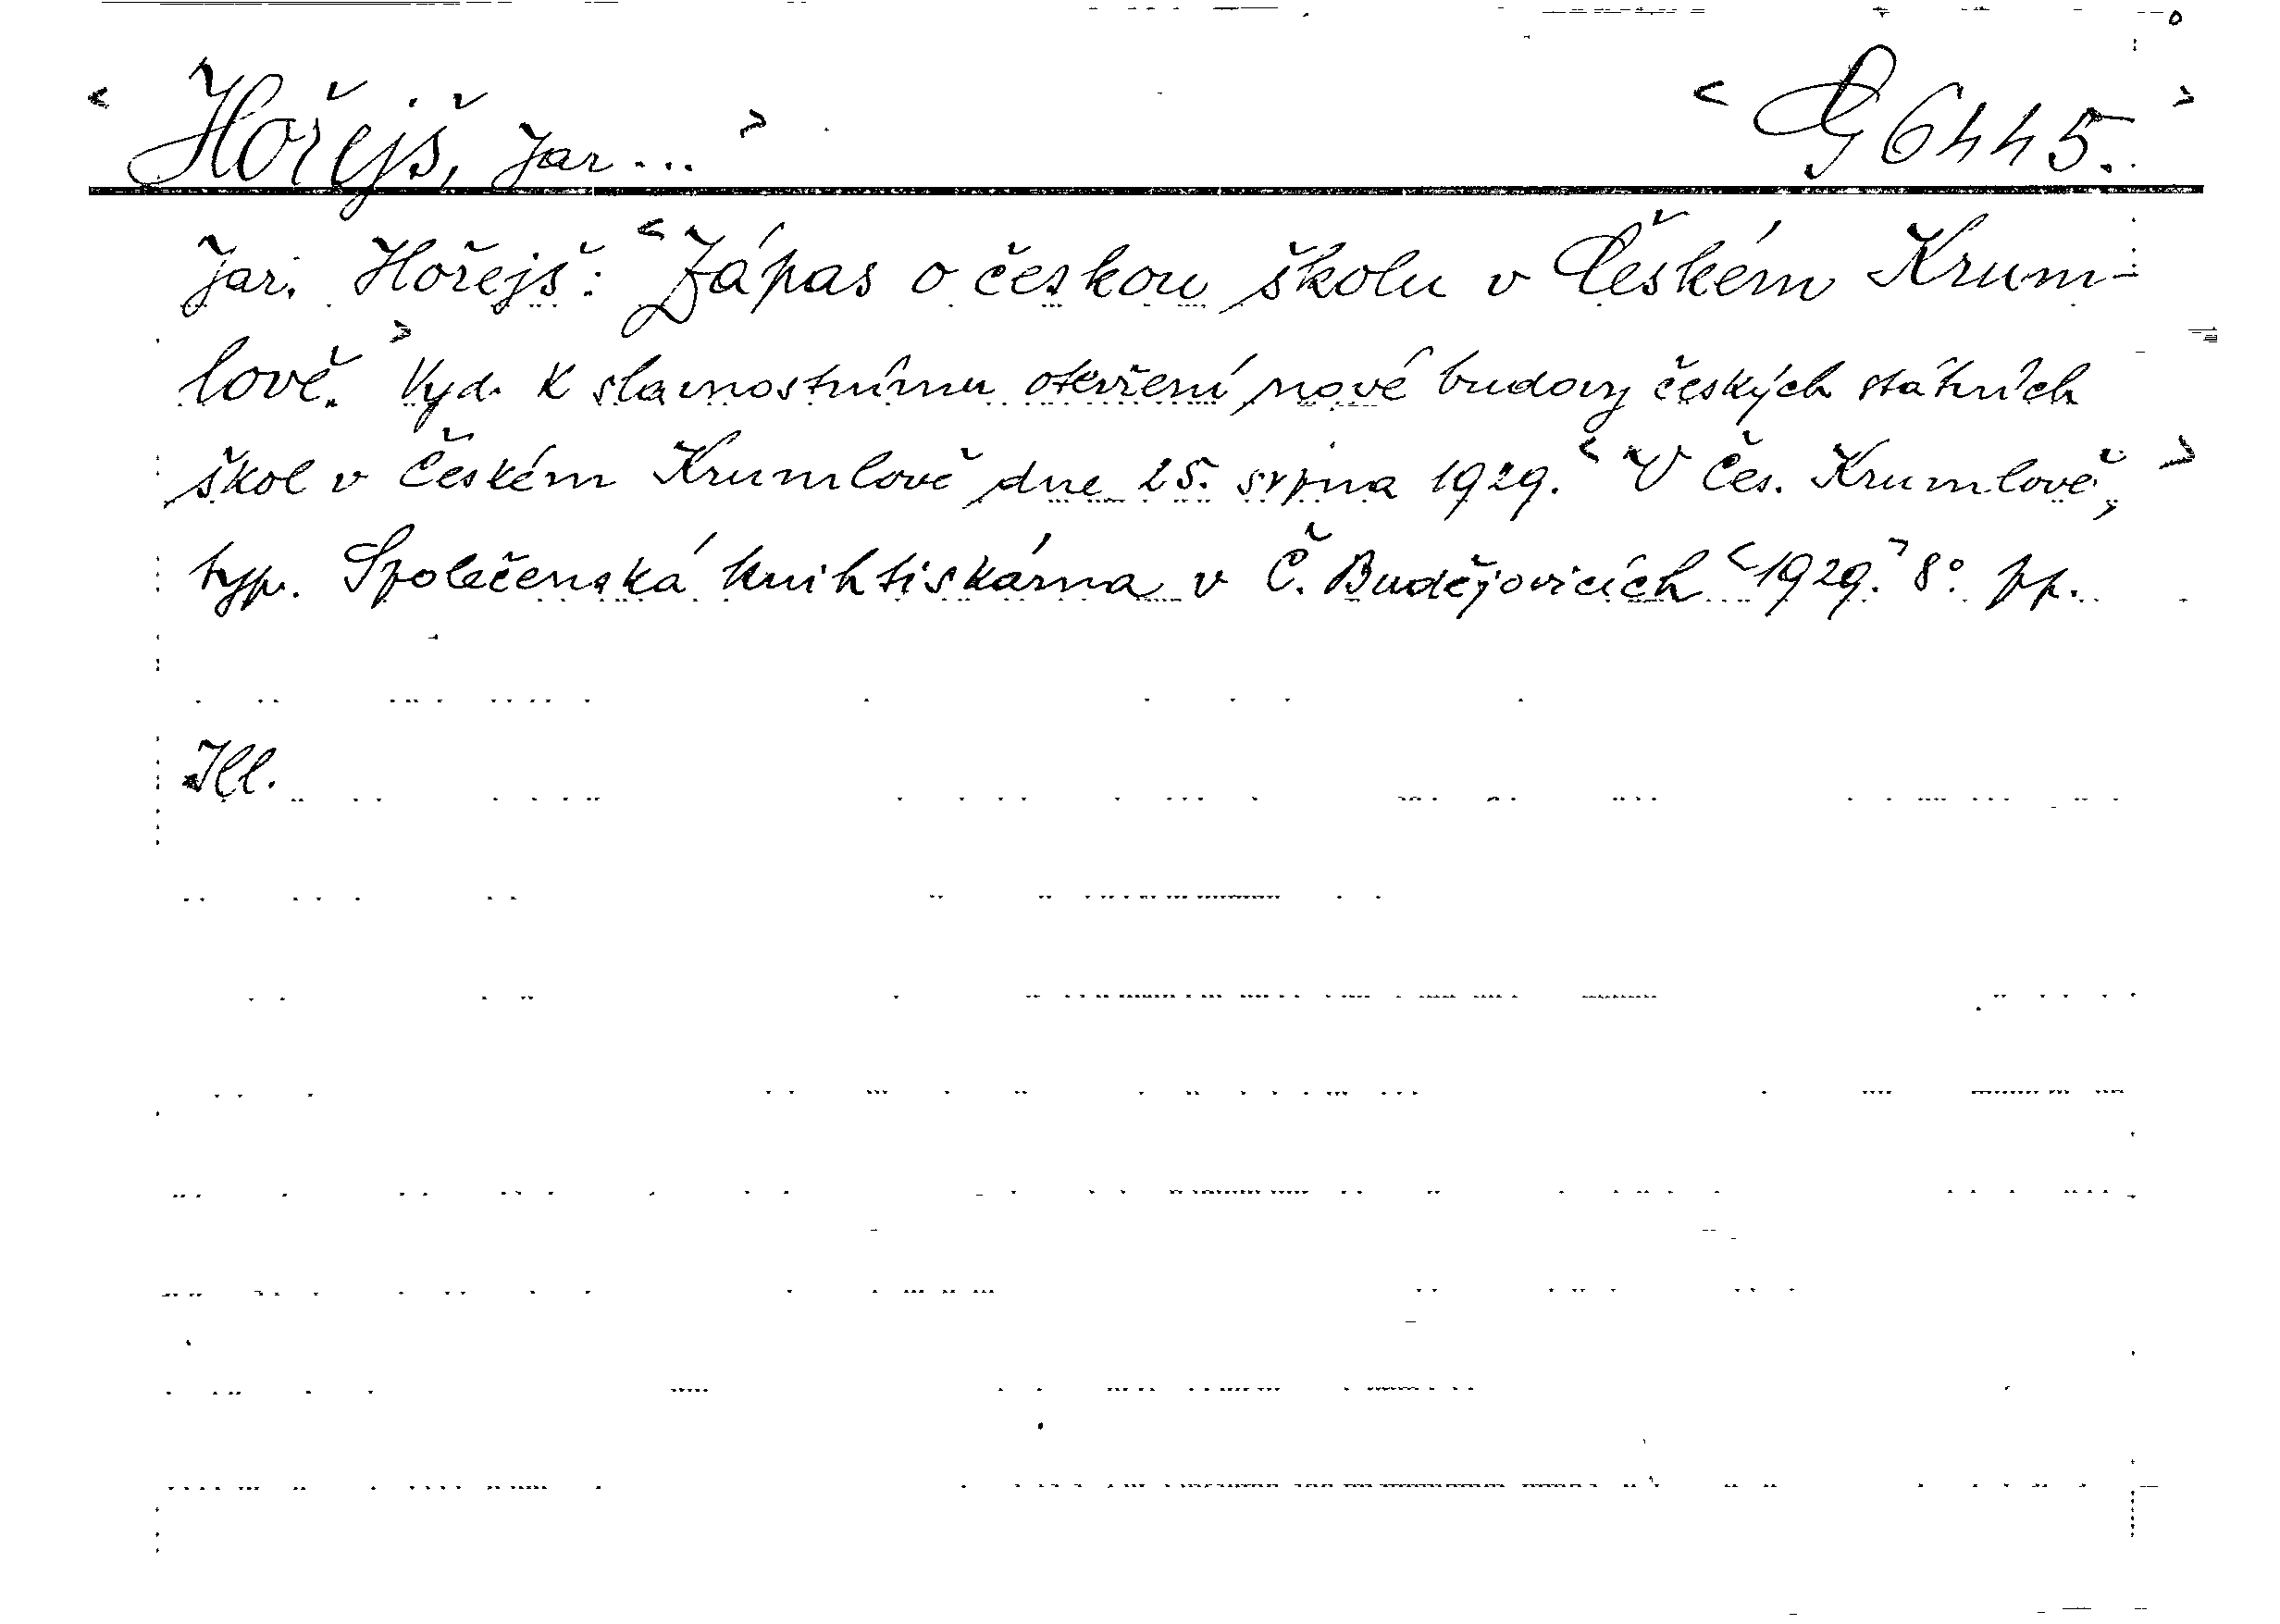 < Hořejš, Jar... > < G 6445. >
Jar. Hořejš: < Zápas o českou školu v Českém Krum-
lově. > Vyd. k slavnostnímu otevření nové budovy českých státních
škol v Českém Krumlově dne 25. srpna 1929. < V Čes. Krumlově, >
typ. Společenská knihtiskárna v Č. Budějovicích < 1929. > 8° pp.
Ill.